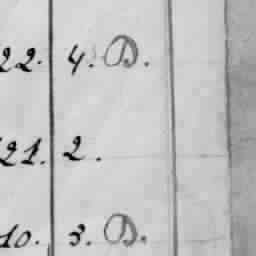 22. 4. D.
21. 2.
10. 3. D.